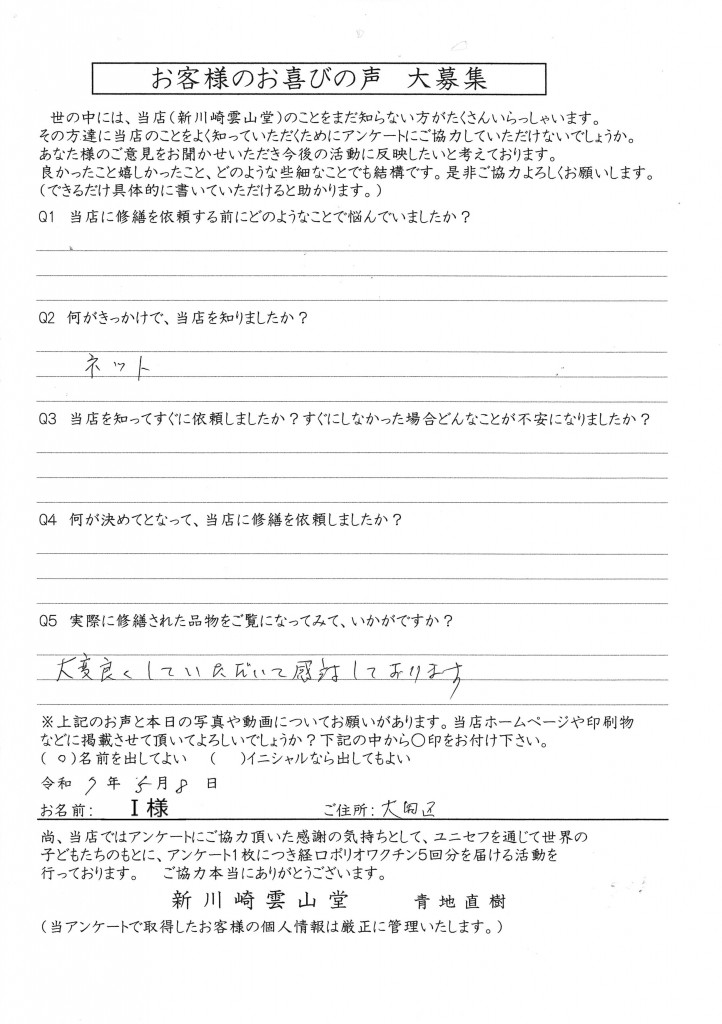 お客様のお喜びの声　大募集
世の中には、当店(新川崎雲山堂)のことをまだ知らない方がたくさんいらっしゃいます。
その方達に当店のことをよく知っていただくためにアンケートにご協力していただけないでしょうか。
あなた様のご意見をお聞かせいただき今後の活動に反映したいと考えております。
良かったこと嬉しかったこと、どのような些細なことでも結構です。是非ご協力よろしくお願いします。
(できるだけ具体的に書いていただけると助かります。)
Q1　当店に修繕を依頼する前にどのようなことで悩んでいましたか？
Q2　何がきっかけで、当店を知りましたか？
ネット
Q3　当店を知ってすぐに依頼しましたか？すぐにしなかった場合どんなことが不安になりましたか？
Q4　何が決めてとなって、当店に修繕を依頼しましたか？
Q5　実際に修繕された品物をご覧になってみて、いかがですか？
大変良くしていただいて感謝しております
※上記のお声と本日の写真や動画についてお願いがあります。当店ホームページや印刷物
などに掲載させて頂いてよろしいでしょうか？下記の中から〇印をお付け下さい。
(○)名前を出してよい　(　)イニシャルなら出してもよい
令和 7 年 5 月 8 日
お名前: I 様　ご住所: 大田区
尚、当店ではアンケートにご協力頂いた感謝の気持ちとして、ユニセフを通じて世界の
子どもたちのもとに、アンケート1枚につき経口ポリオワクチン5回分を届ける活動を
行っております。　ご協力本当にありがとうございます。
新川崎雲山堂　青地直樹
(当アンケートで取得したお客様の個人情報は厳正に管理いたします。)